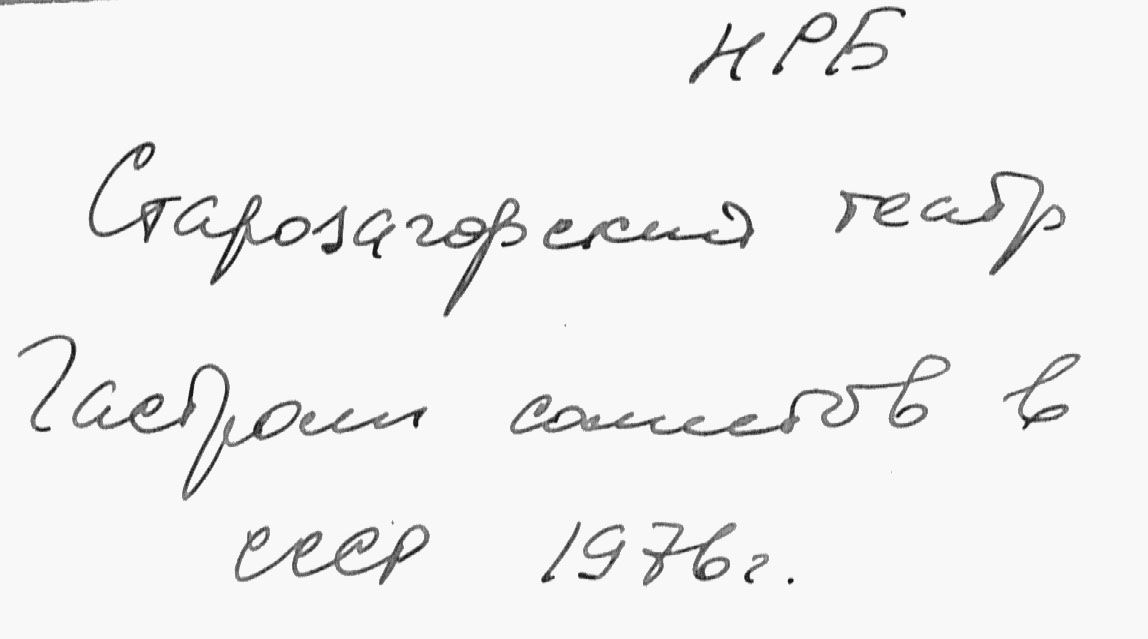 НРБ
Старозагорский театр
Гастроли солистов в
СССР 1976г.